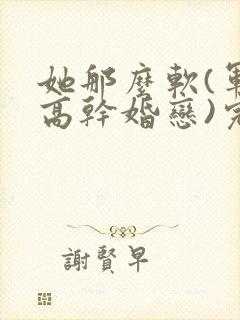 她那麼軟(軍
高幹婚戀)完
謝賢早